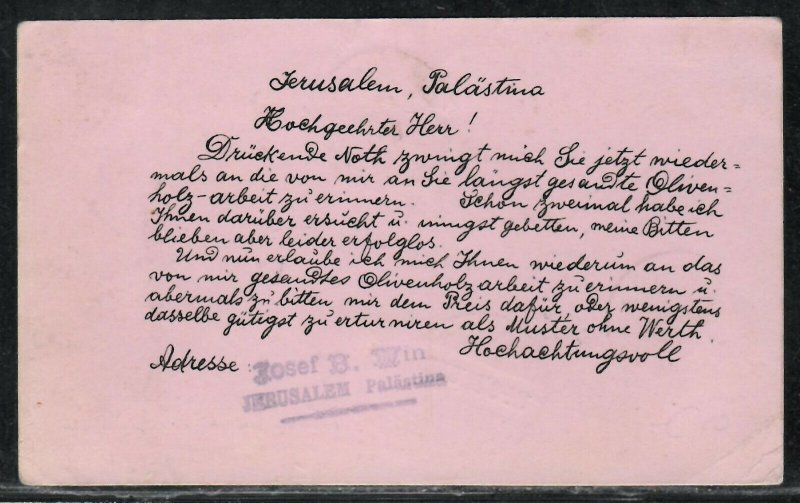 Jerusalem, Palästina
Hochgeehrter Herr!
Drückende Noth zwingt mich Sie jetzt wieder=
mals an die von mir an Sie längst gesandte Oliven=
holz-arbeit zu erinnern. Schon zweimal habe ich
Ihnen darüber ersucht u. innigst gebetten, meine Bitten
blieben aber leider erfolglos.
Und nun erlaube ich mich Ihnen wiederum an das
von mir gesandtes Olivenholzarbeit zu erinnern u.
abermals zu bitten mir dem Preis dafür, oder wenigstens
dasselbe gütigst zu erturniren als Muster ohne Werth.
Hochachtungsvoll
Adresse:
Josef B. Win
JERUSALEM Palästina